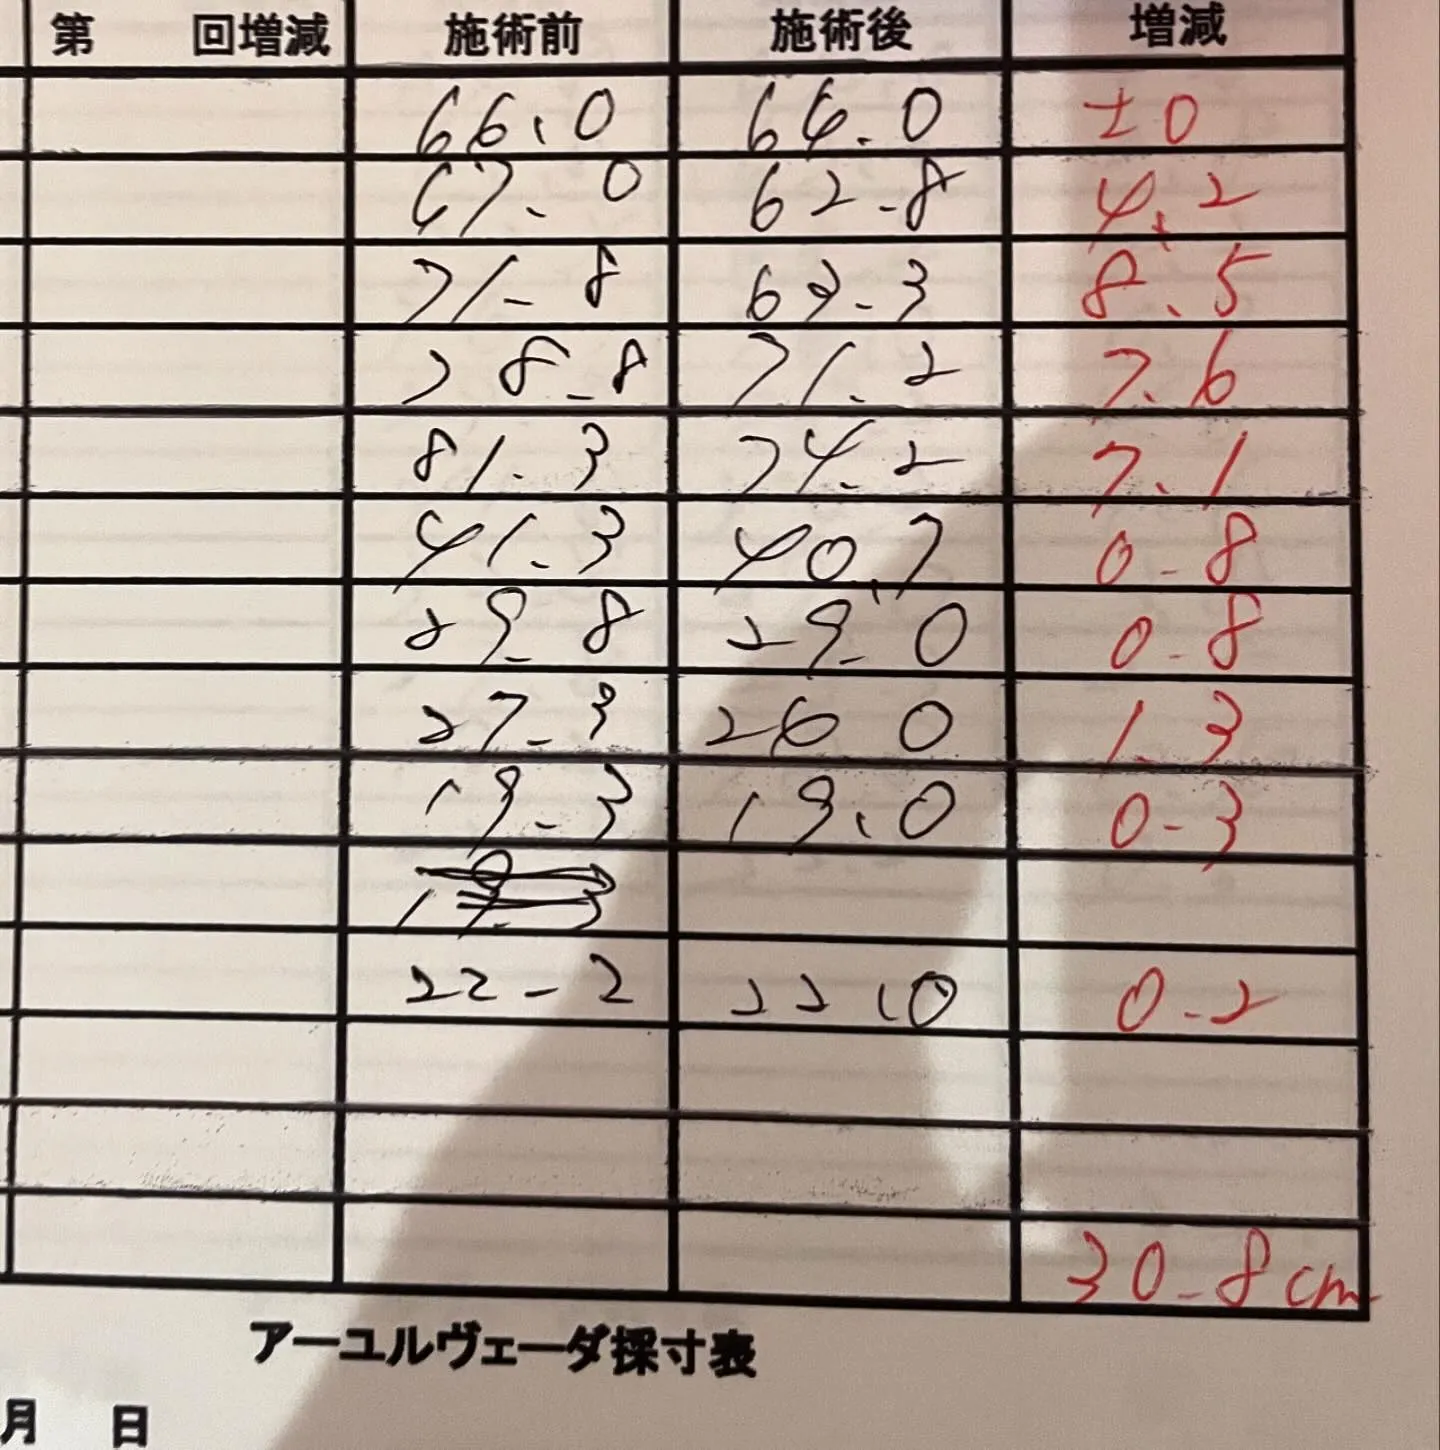 第 回増減 施術前 施術後 増減
66.0 66.0 ±0
67.0 62.8 4.2
71.8 63.3 8.5
78.8 71.2 7.6
81.3 74.2 7.1
41.3 40.7 0.8
29.8 29.0 0.8
27.3 26.0 1.3
19.3 19.0 0.3
19.3
22.2 22.0 0.2
30.8cm
アーユルヴェーダ採寸表
月 日